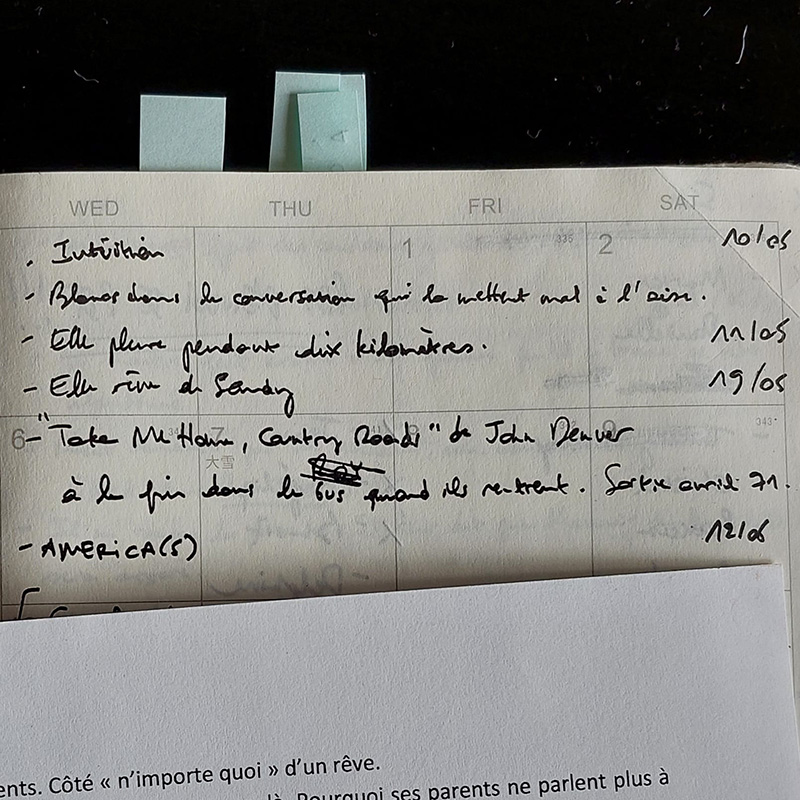 WED THU FRI SAT
1 335 2
. Intuition 10/05
- Blancs dans la conversation qui la mettent mal à l'aise.
- Elle pleure pendant dix kilomètres. 11/05
- Elle rêve de Sandy 19/05
6 7 343
- "Take Me Home, Country Roads" de John Denver
大雪
à la fin dans le bus quand ils rentrent. Sortie avril 71.
- AMERICA(S) 12/06
ents. Côté « n'importe quoi » d'un rêve.
là. Pourquoi ses parents ne parlent plus à